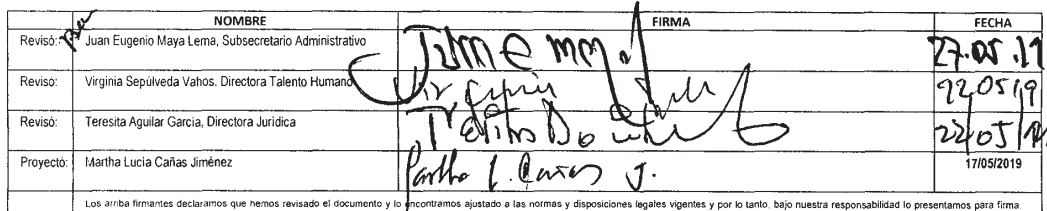 NOMBRE FIRMA FECHA
Revisó: Juan Eugenio Maya Lema, Subsecretario Administrativo 27.05.19
Revisó: Virginia Sepúlveda Vahos, Directora Talento Humano 22/05/19
Revisó: Teresita Aguilar García, Directora Jurídica 22/05/19
Proyectó: Martha Lucía Cañas Jiménez 17/05/2019
Los arriba firmantes declaramos que hemos revisado el documento y lo encontramos ajustado a las normas y disposiciones legales vigentes y por lo tanto, bajo nuestra responsabilidad lo presentamos para firma.